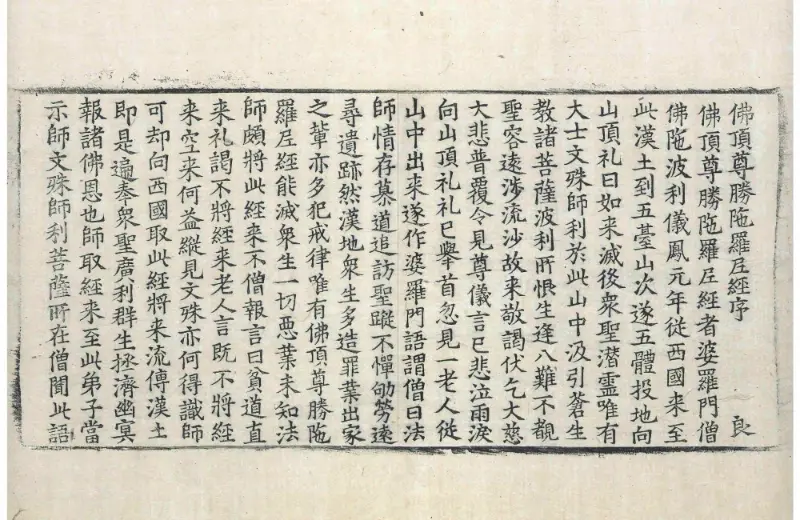 佛頂尊勝陁羅尼經序 良
佛頂尊勝陁羅尼經者婆羅門僧
佛陁波利儀鳳元年從西國來至
此漢土到五臺山次遂五體投地向
山頂礼曰如来滅後衆聖潛靈唯有
大士文殊師利於此山中汲引蒼生
教諸菩薩波利所恨生逢八難不覩
聖容遠涉流沙故来敬謁伏乞大慈
大悲普覆令見尊儀言已悲泣雨淚
向山頂礼礼已舉首忽見一老人從
山中出来遂作婆羅門語謂僧曰法
師情存慕道追訪聖蹤不憚劬勞遠
尋遺跡然漢地衆生多造罪業出家
之輩亦多犯戒律唯有佛頂尊勝陁
羅尼經能滅衆生一切惡業未知法
師頗將此經来不僧報言曰貧道直
来礼謁不將經来老人言既不將經
来空来何益縱見文殊亦何得識師
可却向西國取此經將来流傳漢土
即是遍奉衆聖廣利群生拯濟幽冥
報諸佛恩也師取經来至此弟子當
示師文殊師利菩薩所在僧聞此語